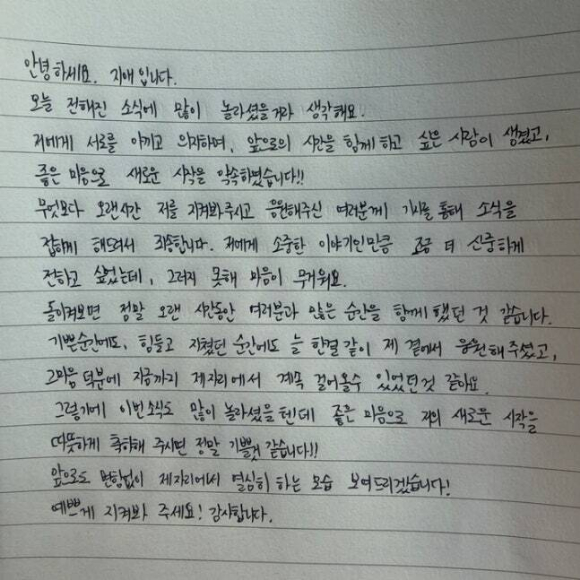 안녕하세요. 지애입니다.
오늘 전해진 소식에 많이 놀라셨을거라 생각해요.
저에게 서로를 아끼고 의지하며, 앞으로의 시간을 함께 하고 싶은 사람이 생겼고,
좋은 마음으로 새로운 시작을 약속하였습니다!!
무엇보다 오랜시간 저를 지켜봐주시고 응원해주신 여러분께 기사를 통해 소식을
접하게 해드려서 죄송합니다. 저에게 소중한 이야기인만큼 조금 더 신중하게
전하고 싶었는데, 그러지 못해 마음이 무거워요.
돌이켜보면 정말 오랜 시간동안 여러분과 많은 순간을 함께 했던 것 같습니다.
기쁜순간에도, 힘들고 지쳤던 순간에도 늘 한결같이 제 곁에서 응원해주셨고,
그마음 덕분에 지금까지 제자리에서 계속 걸어올수 있었던것 같아요.
그렇기에 이번소식도 많이 놀라셨을텐데 좋은 마음으로 저의 새로운 시작을
따뜻하게 축하해 주시면 정말 기쁠것 같습니다!!
앞으로도 변함없이 제자리에서 열심히 하는 모습 보여드리겠습니다!
예쁘게 지켜봐 주세요! 감사합니다.